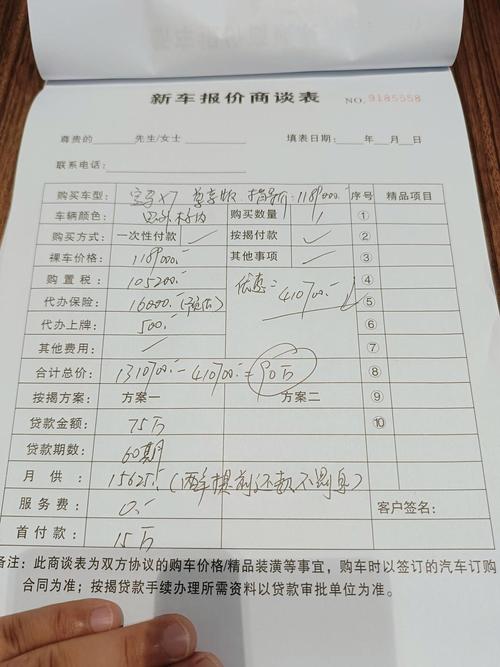 新车报价商谈表 NO.9185558
尊贵的 先生/女士 填表日期: 年 月 日
联系电话:
购买车型: 宝马X7 尊享版 指导价:1189000.- 序号 精品项目
车辆颜色: 黑外棕内 购买数量 1 ①
购买方式: 一次性付款 ✓ 按揭付款 ✓ ②
裸车价格: 1189000.- 其他事项 ✓ ③
购置税: 105200.- 优惠:410700.- ④
代办保险: 16000.-(预估) ⑤
代办上牌: 500.- ⑥
其他费用: ⑦
合计总价: 1310700.- - 410700.- = 90万 ⑧
按揭方案: 方案一 方案二 ⑨
贷款金额: 75万 ⑩
贷款期数: 60期
月供: 15625.-(醉提前还款不罚息)
服务费: 0.- 客户签名:
首付款: 15万
备注:此商谈表为双方协议的购车价格/精品装潢等事宜,购车时以签订的汽车订购
合同为准;按揭贷款手续办理所需资料以贷款审批单位为准。